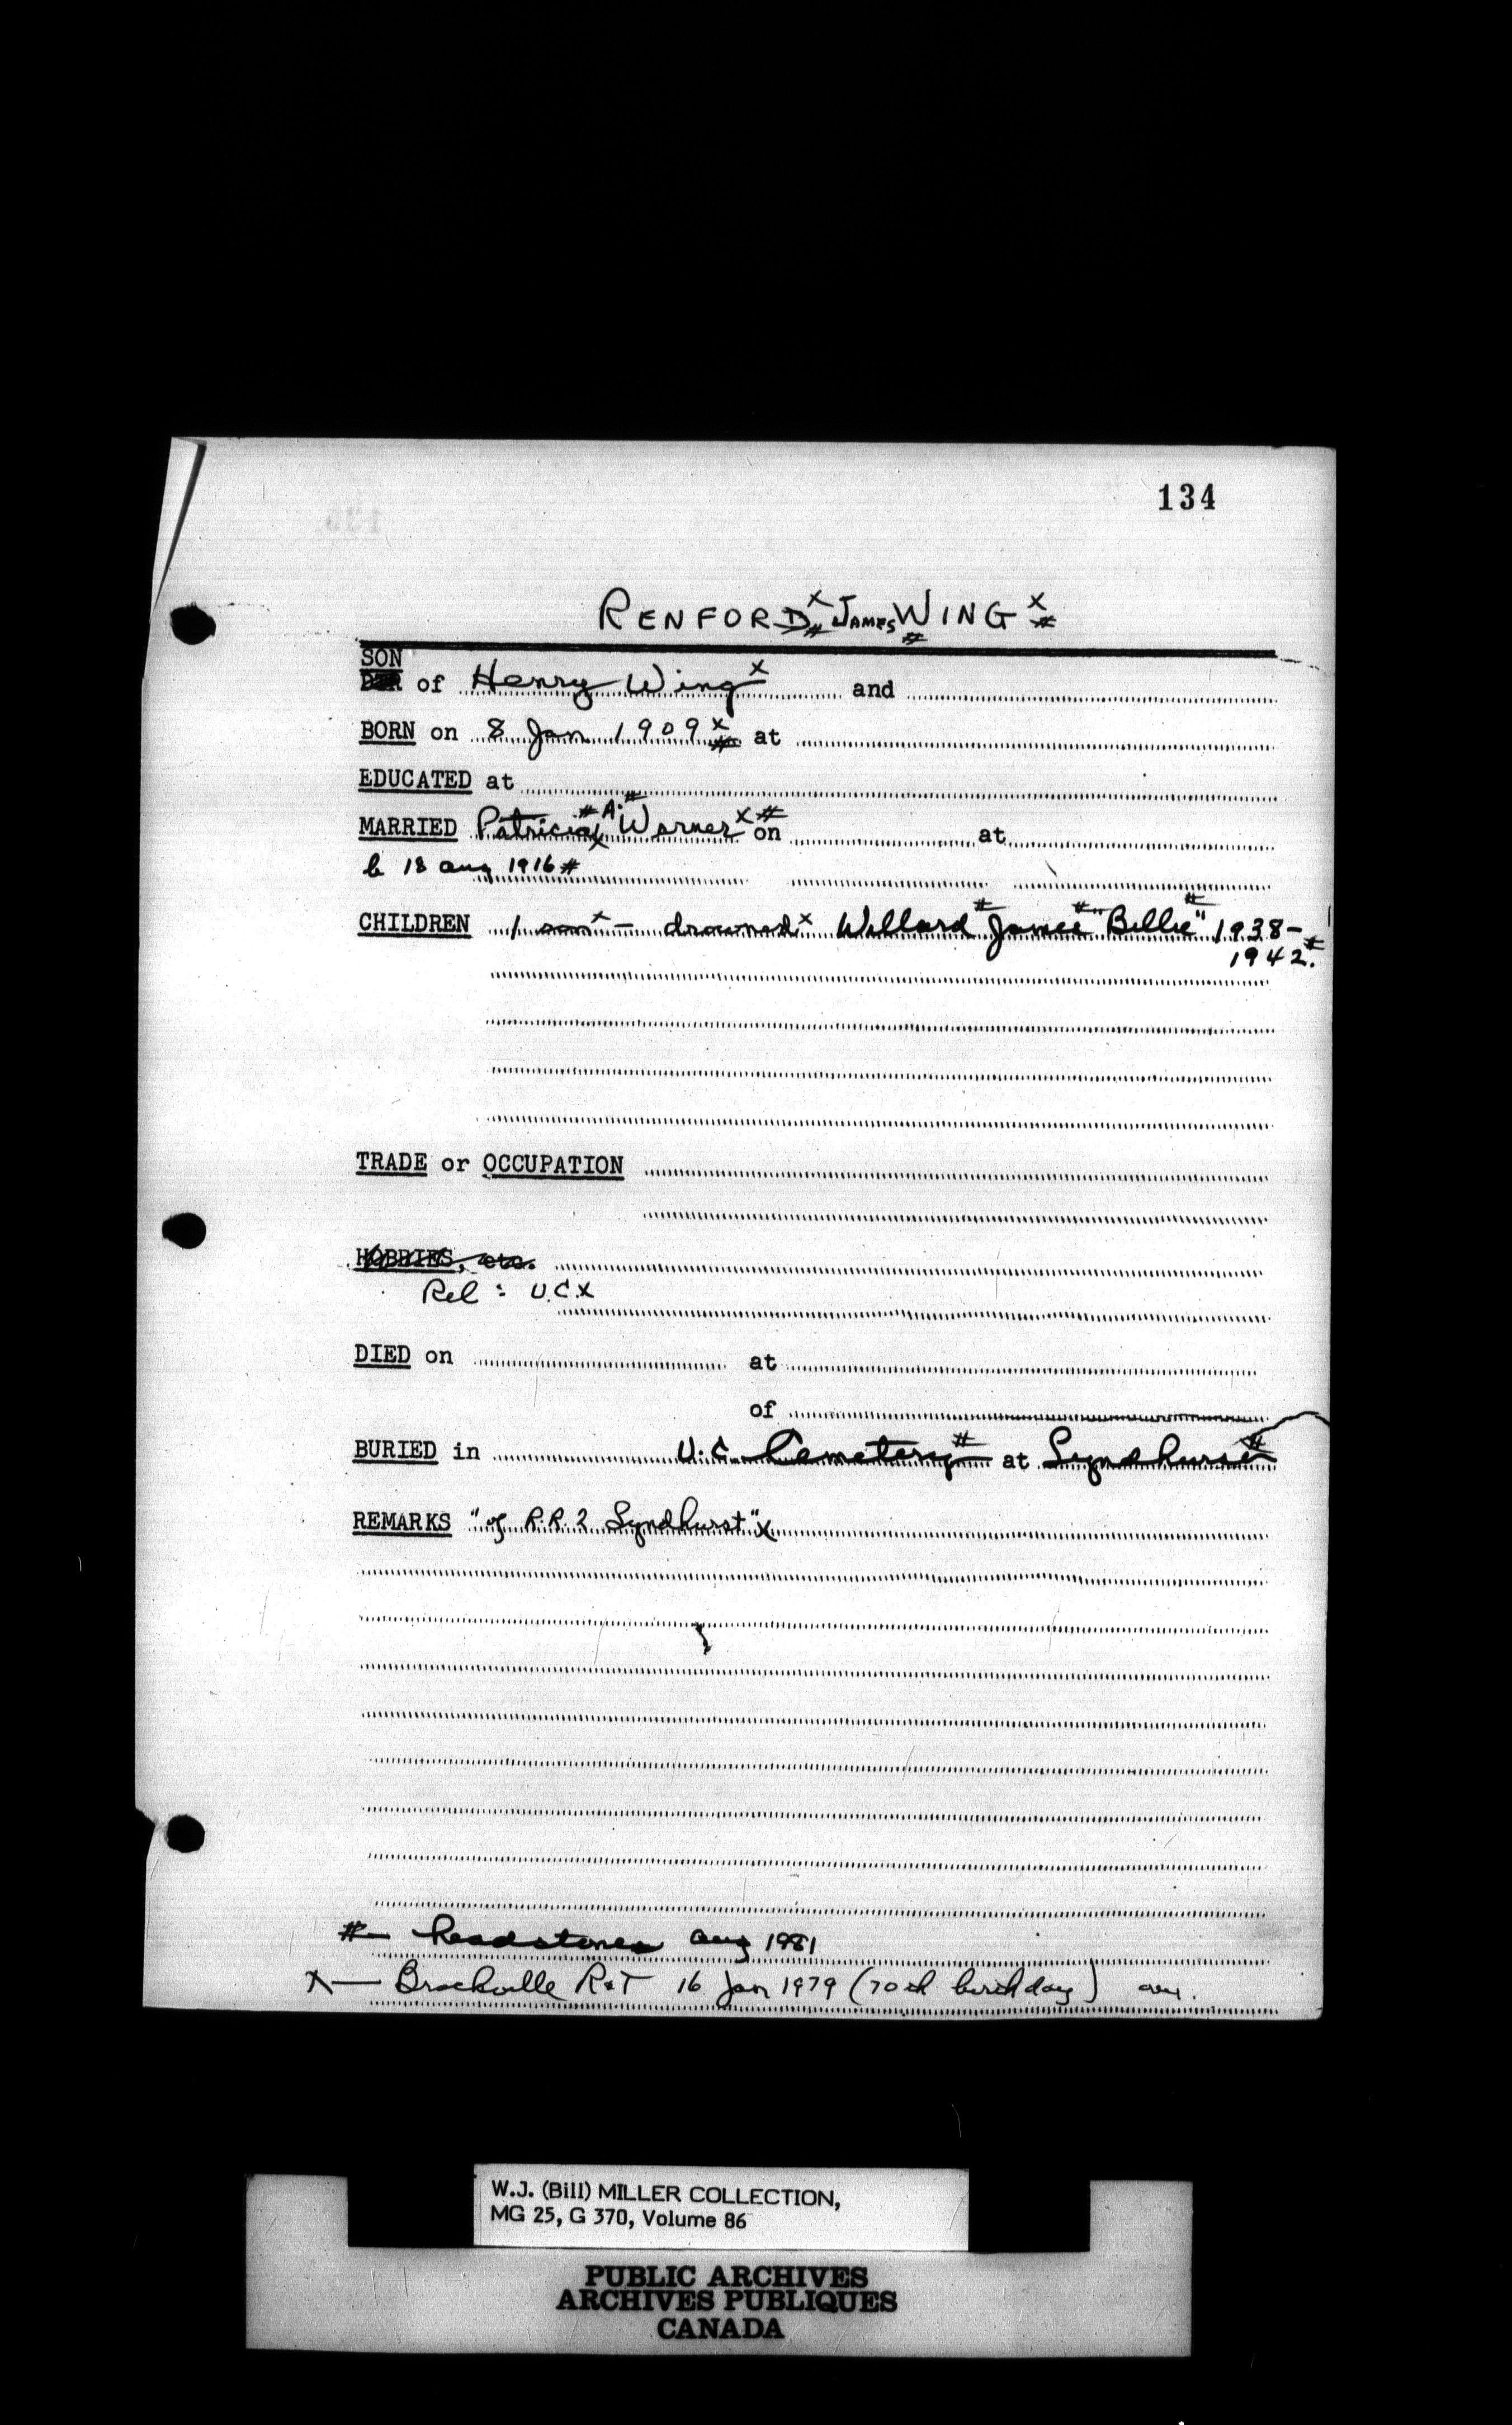 134
RENFORD x # JAMES # WING x #
SON
of Henry Wing x and
BORN on 8 Jan 1909 x # at
EDUCATED at
MARRIED Patricia # x A. # Warner x # on at
b 18 Aug 1916 #
CHILDREN 1 son x – drowned x Willard # James # "Billie" # 1938–
1942. #
TRADE or OCCUPATION
HOBBIES, etc.
Rel : U.C. x
DIED on at
of
BURIED in U.C. Cemetery # at Lyndhurst #
REMARKS "of R.R. 2 Lyndhurst" x
# – headstones Aug 1981
x — Brockville R&T 16 Jan 1979 (70th birthday)
W.J. (Bill) MILLER COLLECTION,
MG 25, G 370, Volume 86
PUBLIC ARCHIVES
ARCHIVES PUBLIQUES
CANADA